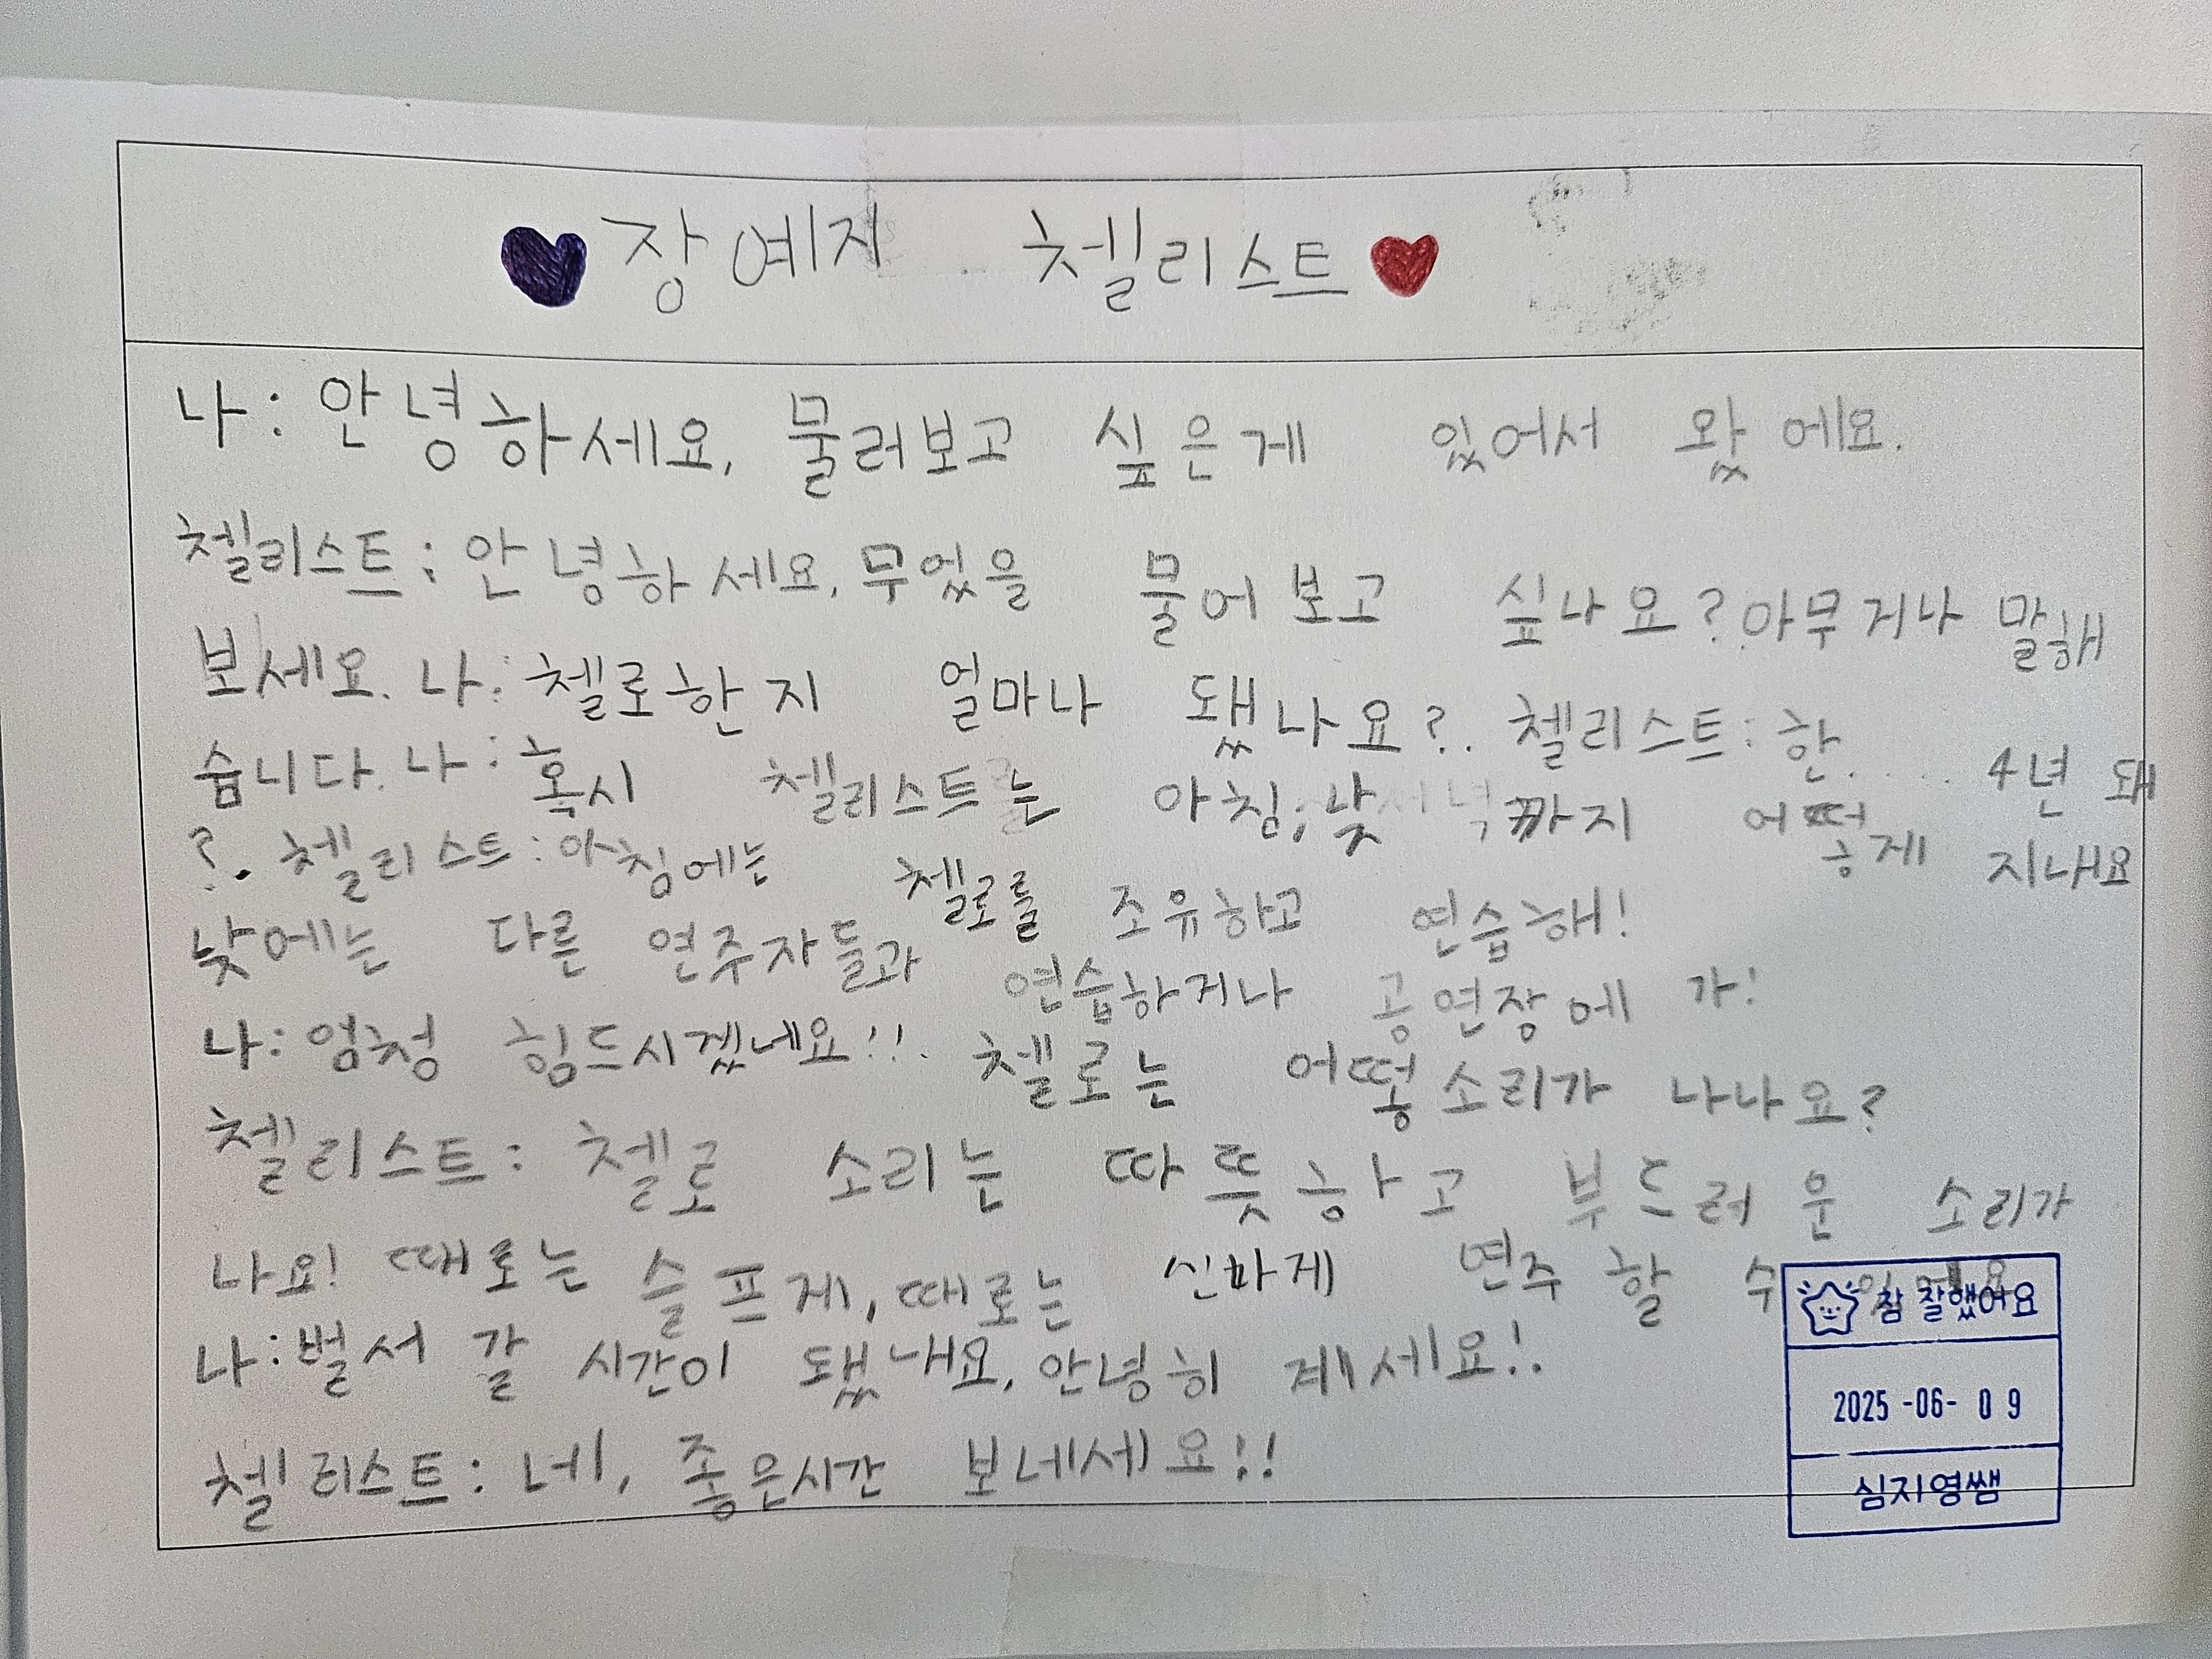 장예지 첼리스트
나: 안녕하세요, 물러보고 싶은게 있어서 왔에요.
첼리스트: 안녕하세요, 무엇을 물어보고 싶나요? 아무거나 말해
보세요. 나: 첼로한지 얼마나 됐나요?. 첼리스트: 한..... 4년 돼
습니다. 나: 혹시 첼리스트는 아침, 낮 까지 어떠하게 지내요
?. 첼리스트: 아침에는 첼로를 조유하고 연습해!
낮에는 다른 연주자들과 연습하거나 공연장에 가!
나: 엄청 힘드시겠네요!!. 첼로는 어떻 소리가 나나요?
첼리스트: 첼로 소리는 따뜻하고 부드러운 소리가
나요! 때로는 슬프게, 때로는 신나게 연주 할 수
나: 벌서 갈 시간이 됐내요, 안녕히 계세요!.
첼리스트: 네, 좋은시간 보네세요!!
참 잘했어요
2025-06-09
심지영쌤